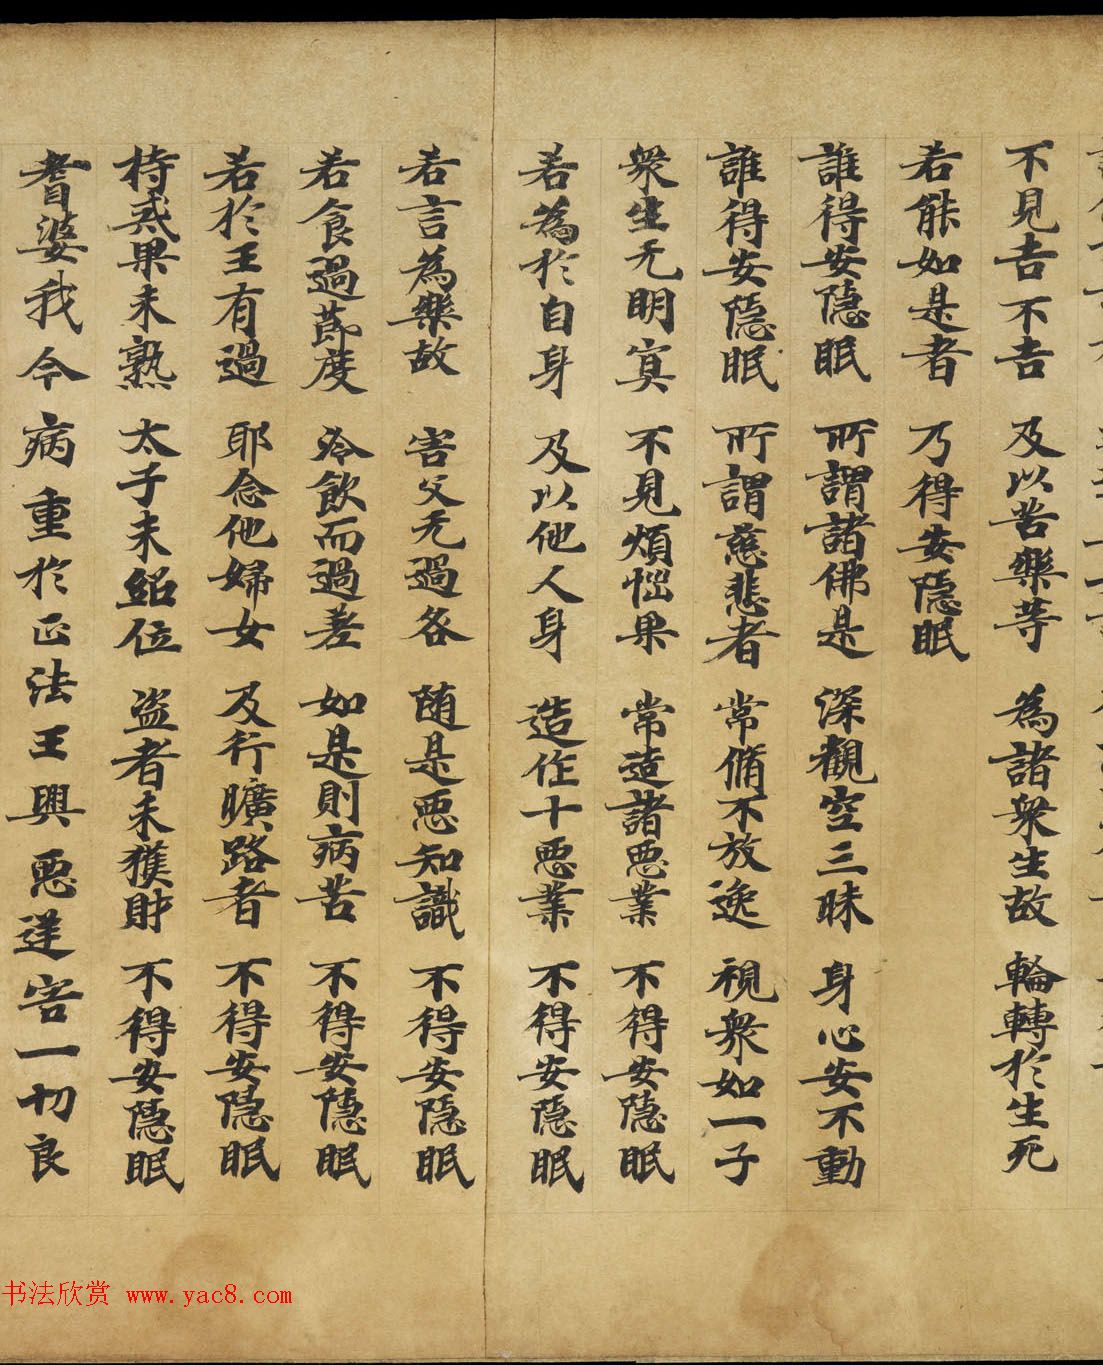 不見吉不吉 及以苦樂等 為諸衆生故 輪轉於生死
若能如是者 乃得安隱眠
誰得安隱眠 所謂諸佛是 深觀空三昧 身心安不動
誰得安隱眠 所謂慈悲者 常脩不放逸 視衆如一子
衆生无明冥 不見煩惱果 常造諸惡業 不得安隱眠
若為於自身 及以他人身 造作十惡業 不得安隱眠
若言為樂故 害父无過咎 随是惡知識 不得安隱眠
若食過莭度 冷飲而過差 如是則病苦 不得安隱眠
若於王有過 耶念他婦女 及行曠路者 不得安隱眠
持戒果未熟 太子未紹位 盗者未獲財 不得安隱眠
耆婆我今病重於正法王興惡逆害一切良
书法欣赏 www.yac8.com